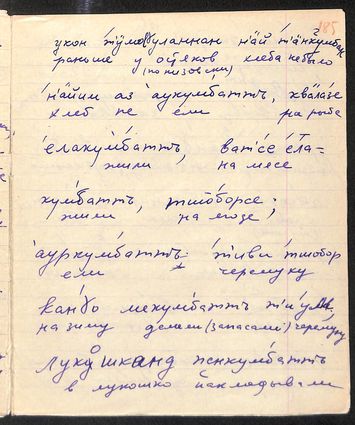 185
укон тӱмӧɣуланнан н'ӓй та́нкумбаɣ
раньше у остяков хлеба не было
(по низовски)
н'а́йим аз аукумбатт, ква́лазе
хлеб не ели рырыба
е́лакумбатт, ватсе е́ла-
жили на мясе
кумбатт, тшоборсе;
жили на ягоде
ауркумбатт тиви тшобор
ели черемуху
ка́нбо мекумбатт
на зиму делали (запасали) черемуху
лукошканд пенкумбатть
в лукошко накладывали